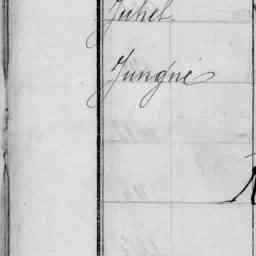 Juhel
Jungné